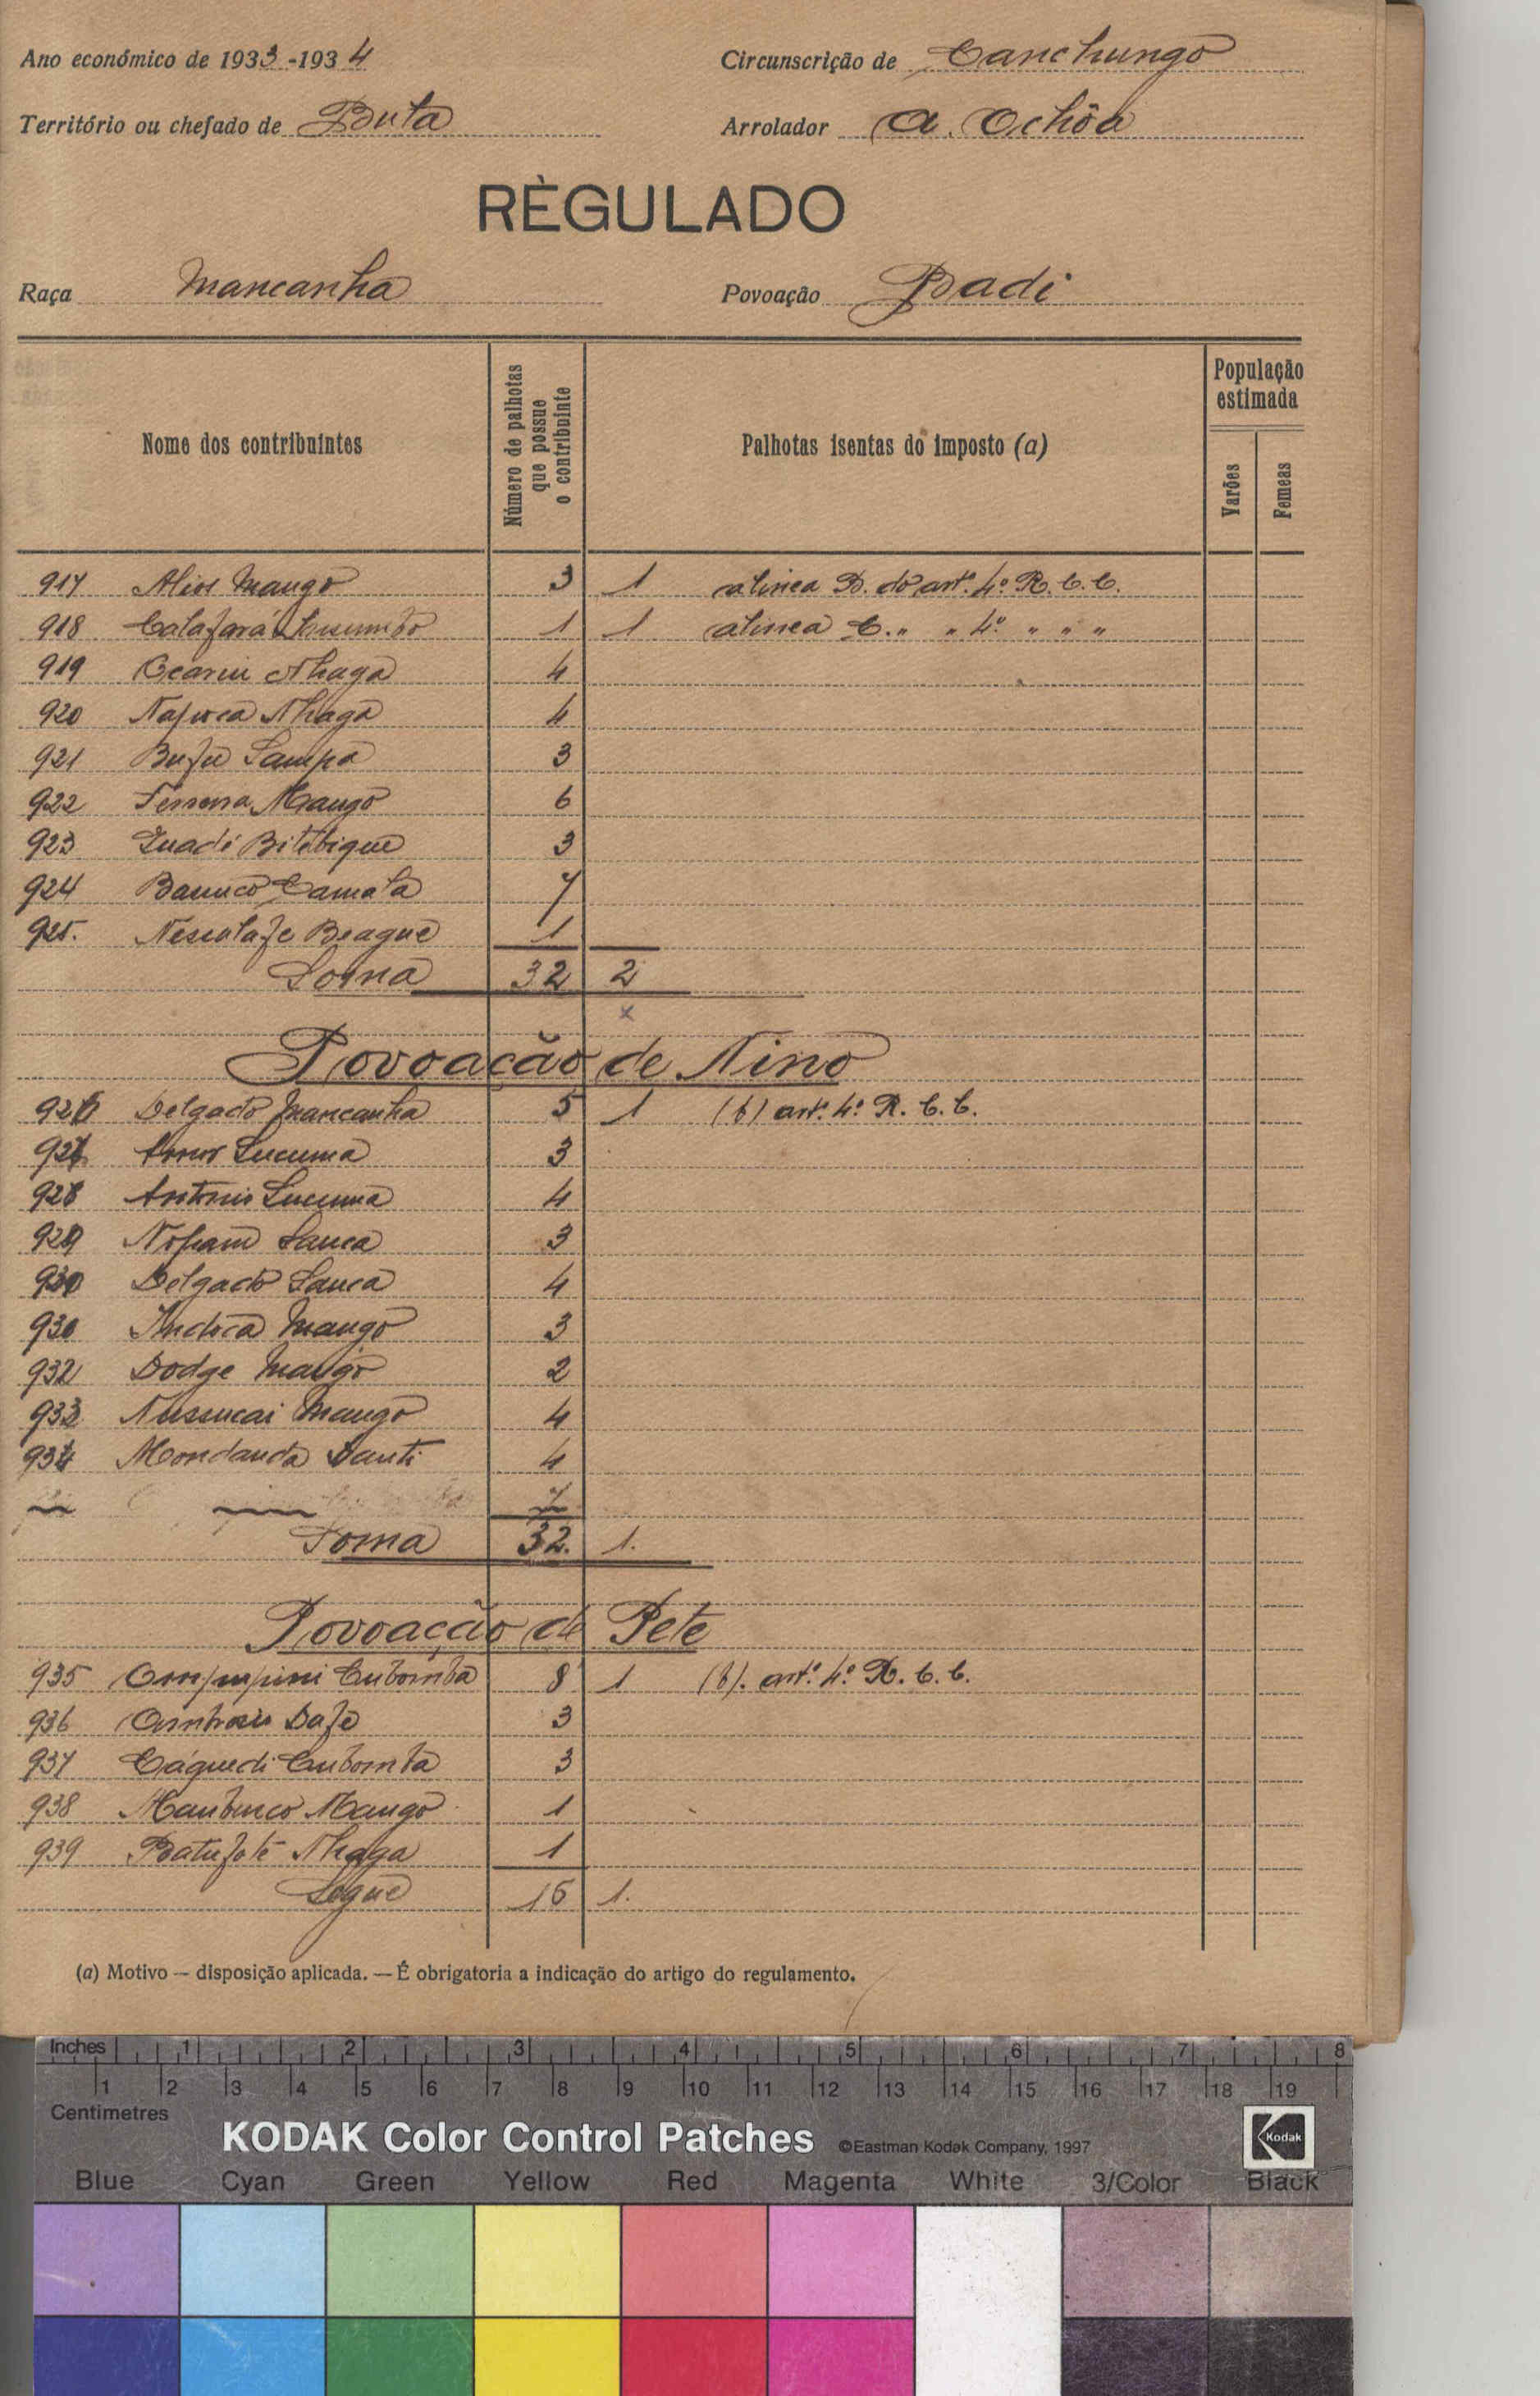 Ano económico de 1933-1934 Circunscrição de Canchungo
Território ou chefado de Buta Arrolador A. Ochôa
RÈGULADO
Raça Mancanha Povoação Badi
Nome dos contribuintes
Número de palhotas que possue o contribuinte
Palhotas isentas do imposto (a)
População estimada
Varões Femeas
917 Mango 3 1 alinea B. do art.º 4.º R. C. C.
918 1 1 alinea C. " " 4.º " " "
919 Nhaga 4
920 Nhaga 4
921 Bufu Sampa 3
922 Mango 6
923 3
924 Camata 7
925. Beague 1
Soma 32 2
x
Povoação de Nino
926 Delgado Mancanha 5 1 (b) art.º 4.º R. C. C.
927 Lucuma 3
928 Antonio Lucuma 4
929 Sanca 3
930 Delgado Sanca 4
930 Indoca Mango 3
932 Dodge Mango 2
933 Nussucai Mango 4
934 Mondanda Danti 4
Soma 32. 1.
Povoação de Pete
935 Cubomba 8 1 (b). art.º 4.º R. C. C.
936 Ambrosio Dafe 3
937 Cáguedi Cubomba 3
938 Mango 1
939 Batufoté Nhaga 1
Segue 16 1.
(a) Motivo — disposição aplicada. — É obrigatoria a indicação do artigo do regulamento.
Inches 1 2 3 4 5 6 7 8
1 2 3 4 5 6 7 8 9 10 11 12 13 14 15 16 17 18 19
Centimetres
KODAK Color Control Patches ©Eastman Kodak Company, 1997 Kodak
Blue Cyan Green Yellow Red Magenta White 3/Color Black